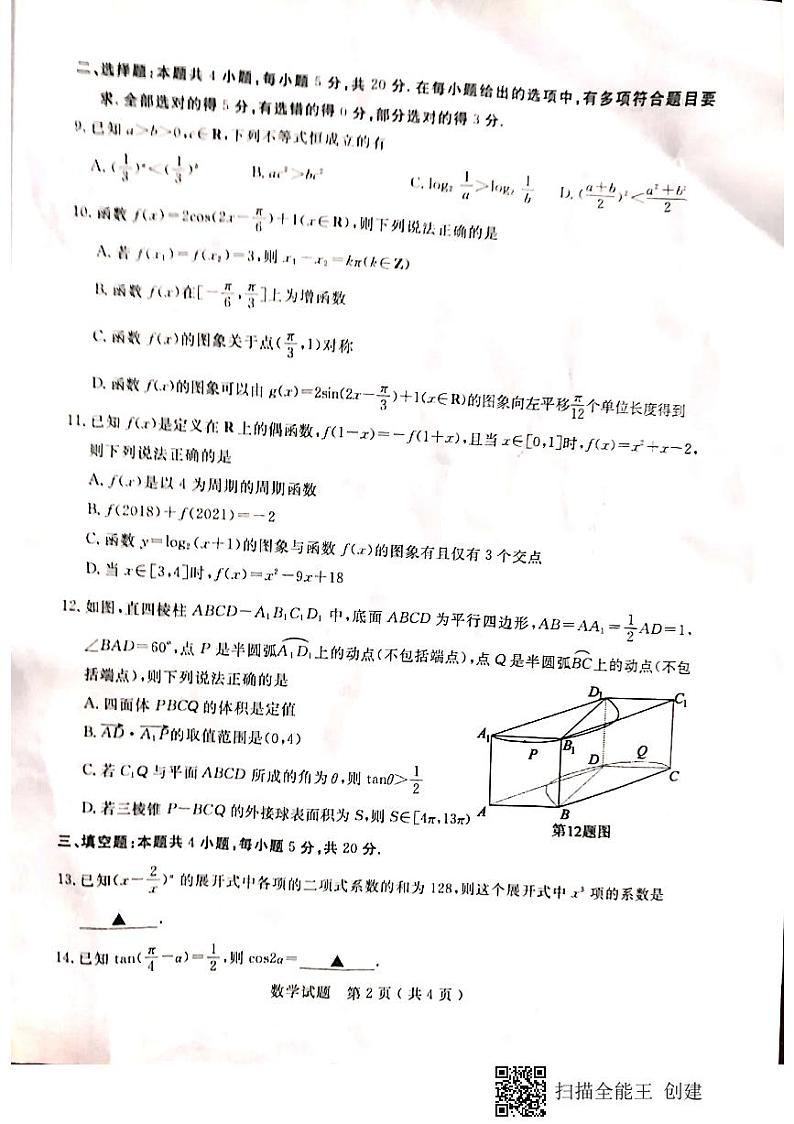 二、选择题:本题共 4 小题,每小题 5 分,共 20 分.在每小题给出的选项中,有多项符合题目要
求.全部选对的得 5 分,有选错的得 0 分,部分选对的得 3 分.
9.已知 a>b>0,c∈R,下列不等式恒成立的有
A.(1/3)ᵃ<(1/3)ᵇ B.ac²>bc² C.log₂ 1/a>log₂ 1/b D.((a+b)/2)²<(a²+b²)/2
10.函数 f(x)=2cos(2x-π/6)+1(x∈R),则下列说法正确的是
A.若 f(x₁)=f(x₂)=3,则 x₁-x₂=kπ(k∈Z)
B.函数 f(x)在[-π/6,π/3]上为增函数
C.函数 f(x)的图象关于点(π/3,1)对称
D.函数 f(x)的图象可以由 g(x)=2sin(2x-π/3)+1(x∈R)的图象向左平移π/12个单位长度得到
11.已知 f(x)是定义在 R 上的偶函数,f(1-x)=-f(1+x),且当 x∈[0,1]时,f(x)=x²+x-2,
则下列说法正确的是
A.f(x)是以 4 为周期的周期函数
B.f(2018)+f(2021)=-2
C.函数 y=log₂(x+1)的图象与函数 f(x)的图象有且仅有 3 个交点
D.当 x∈[3,4]时,f(x)=x²-9x+18
12.如图,直四棱柱 ABCD-A₁B₁C₁D₁ 中,底面 ABCD 为平行四边形,AB=AA₁=1/2AD=1,
∠BAD=60°,点 P 是半圆弧A₁D₁上的动点(不包括端点),点 Q 是半圆弧BC上的动点(不包
括端点),则下列说法正确的是
A.四面体 PBCQ 的体积是定值
B.AD·A₁P的取值范围是(0,4)
C.若 C₁Q 与平面 ABCD 所成的角为 θ,则 tanθ>1/2
D.若三棱锥 P-BCQ 的外接球表面积为 S,则 S∈[4π,13π)
D₁
C₁
A₁
B₁
P
D
Q
C
A
B
第12题图
三、填空题:本题共 4 小题,每小题 5 分,共 20 分.
13.已知(x-2/x)ⁿ 的展开式中各项的二项式系数的和为 128,则这个展开式中 x³ 项的系数是
▲.
14.已知 tan(π/4-α)=1/2,则 cos2α= ▲.
数学试题 第 2 页(共 4 页)
扫描全能王 创建